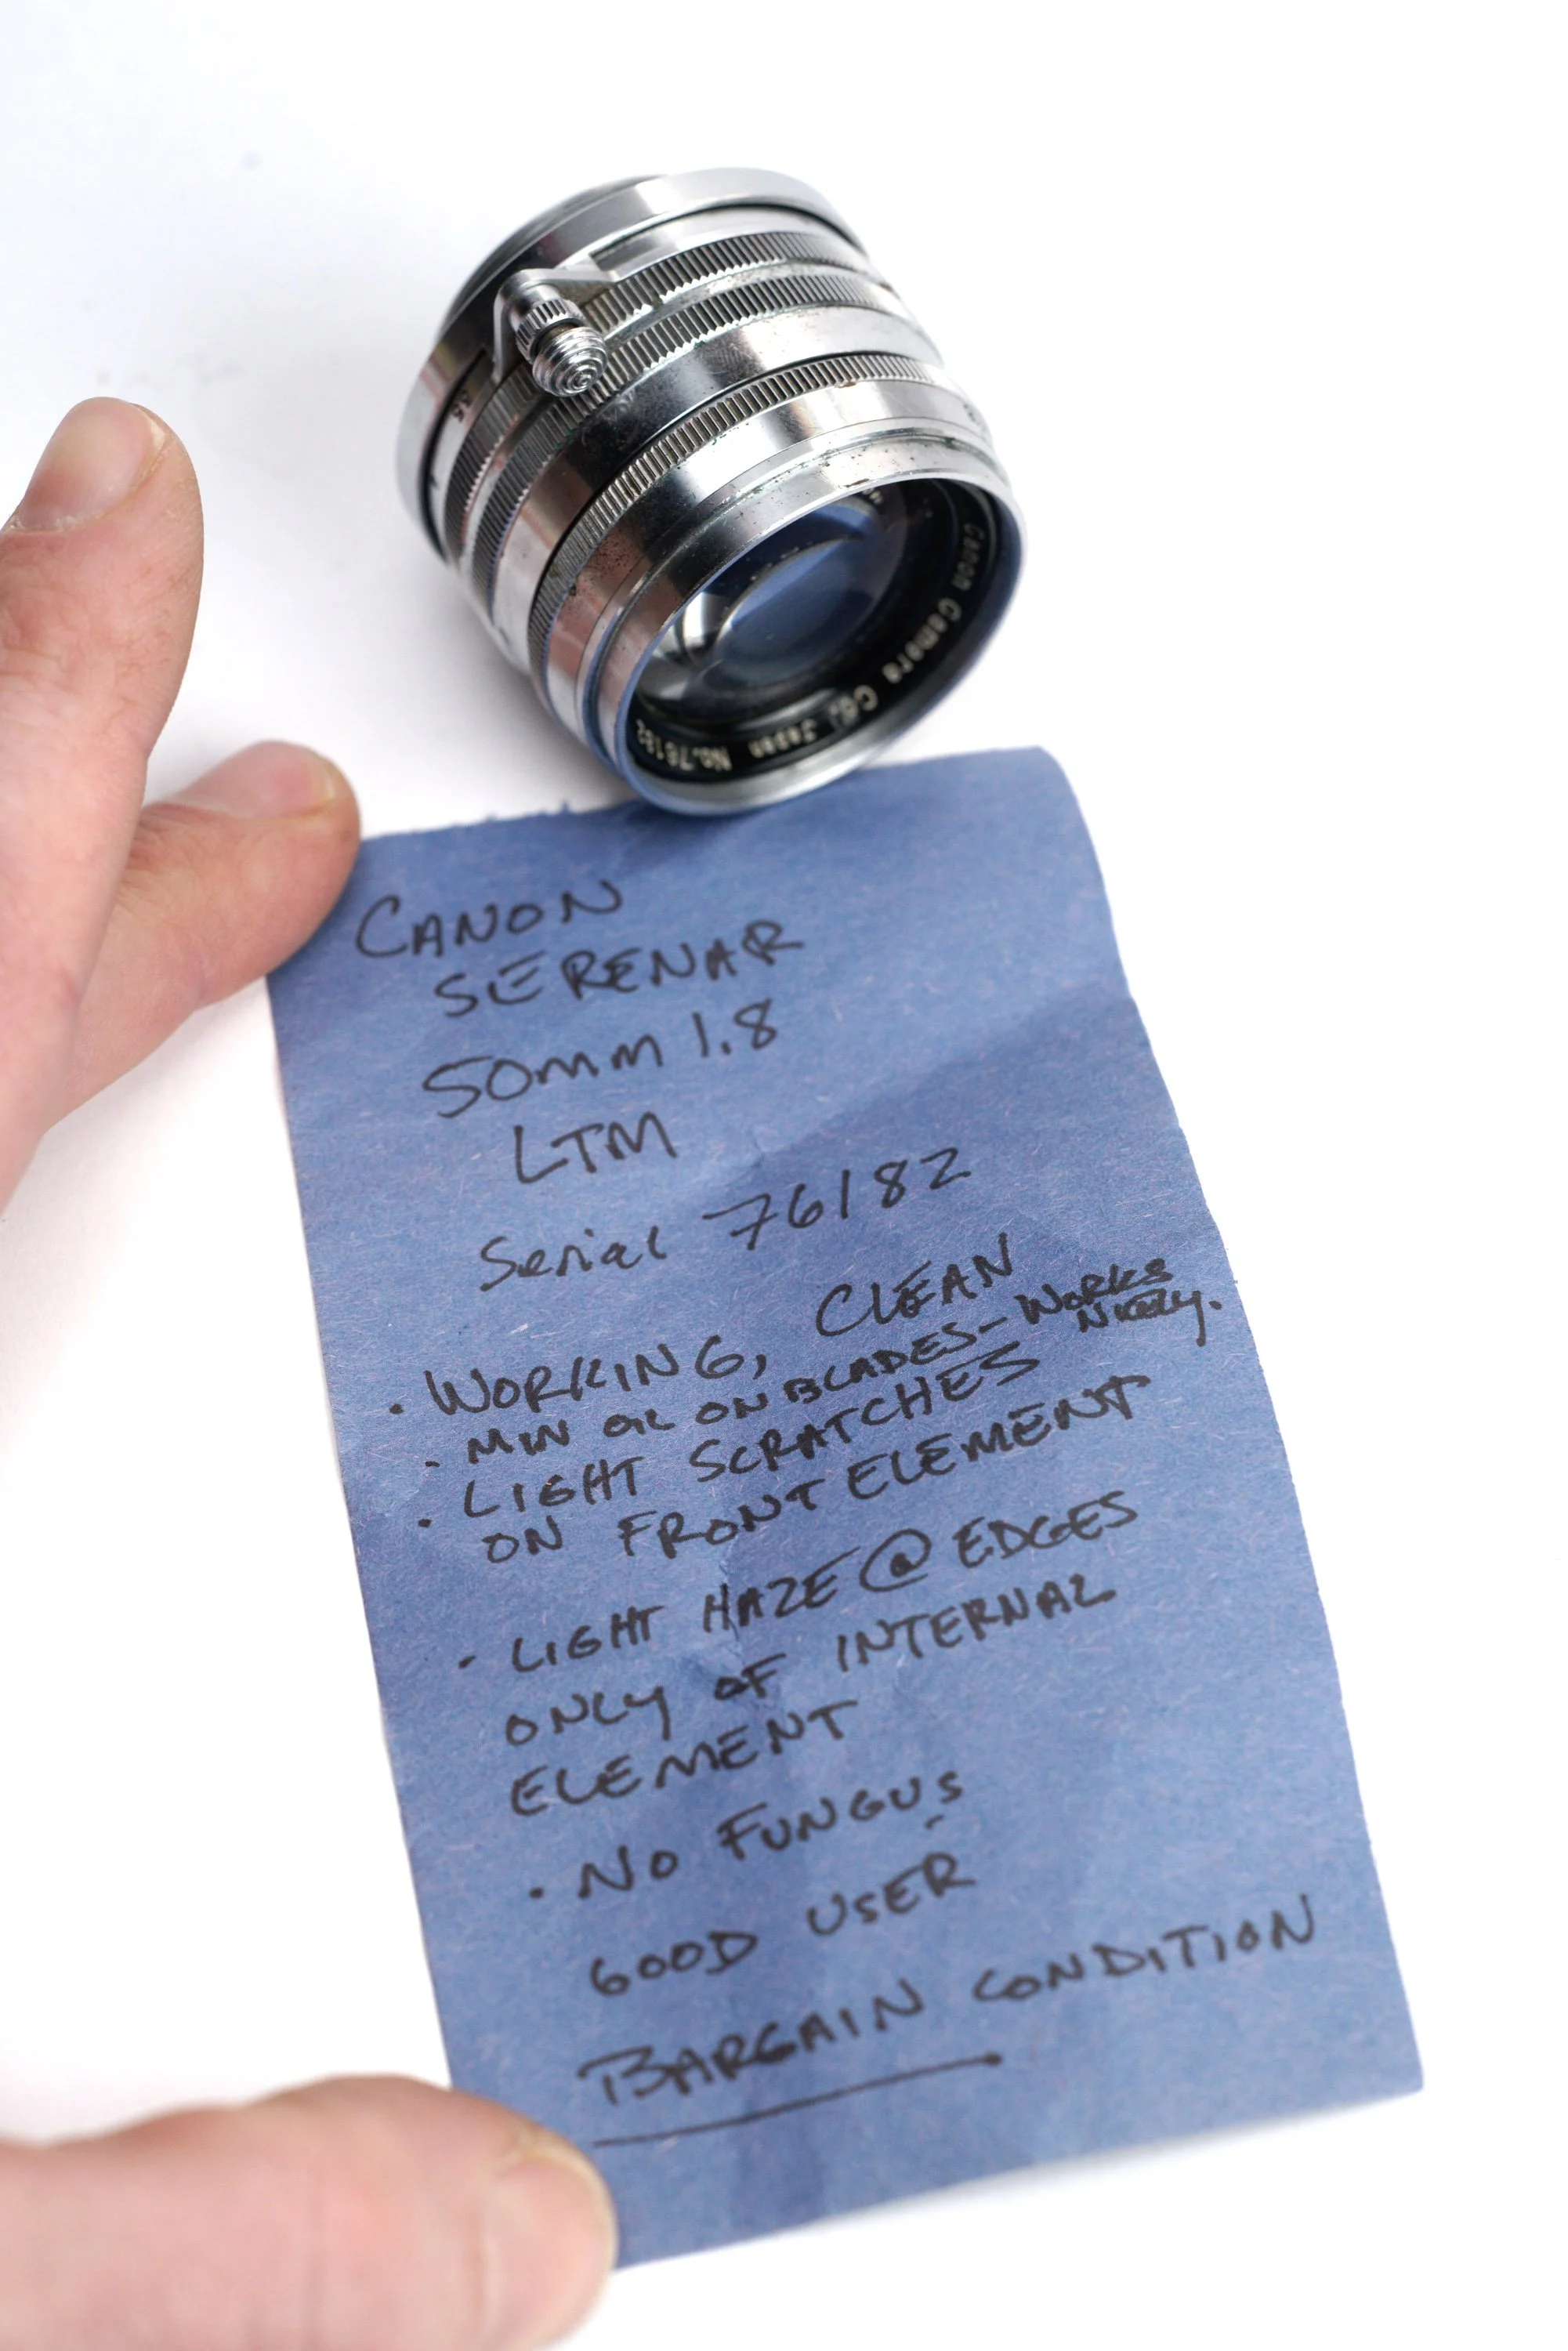 Canon Camera Co. Japan No.76182
CANON
SERENAR
50mm 1.8
LTM
Serial 76182
• WORKING, CLEAN
• MIN OIL ON BLADES - WORKS
NICELY.
• LIGHT SCRATCHES
ON FRONT ELEMENT
• LIGHT HAZE @ EDGES
ONLY OF INTERNAL
ELEMENT
• NO FUNGUS
GOOD USER
BARGAIN CONDITION